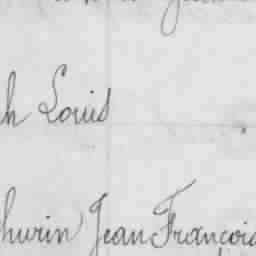 h Louis
hurin Jean François